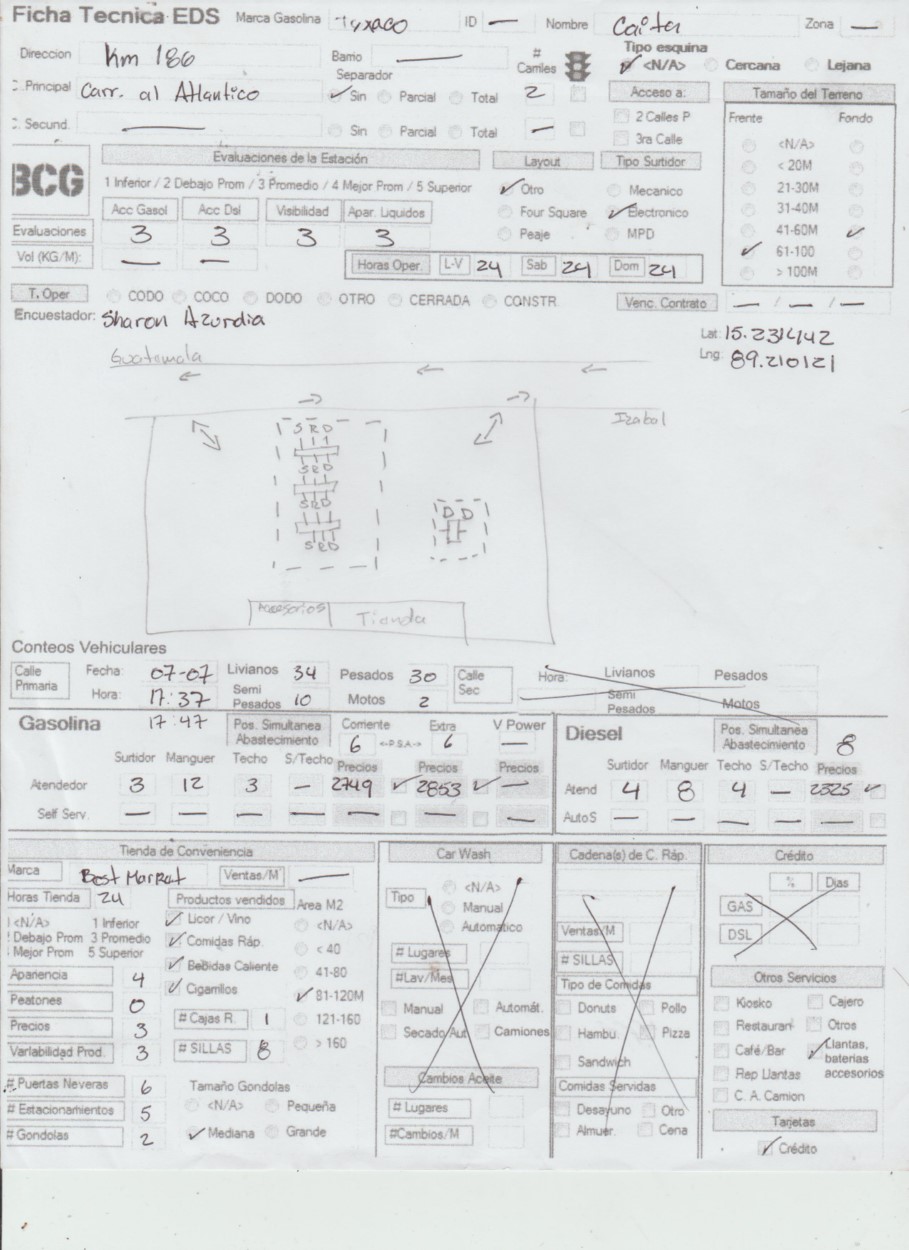 Ficha Tecnica EDS Marca Gasolina Tyxaco ID — Nombre Zona —
Direccion Km 186 Barrio — # Carriles Tipo esquina <N/A> Cercana Lejana
Separador
C. Principal Carr. al Atlantico Sin Parcial Total 2 Acceso a: Tamaño del Terreno
2 Calles P
C. Secund. — Sin Parcial Total — 3ra Calle
Frente Fondo
<N/A>
< 20M
21-30M
31-40M
41-60M
61-100
> 100M
BCG
Evaluaciones de la Estación Layout Tipo Surtidor
1 Inferior / 2 Debajo Prom / 3 Promedio / 4 Mejor Prom / 5 Superior Otro Mecanico
Acc Gasol Acc Dsl Visibilidad Apar. Liquidos Four Square Electronico
Evaluaciones 3 3 3 3 Peaje MPD
Vol (KG/M): — — Horas Oper. L-V 24 Sab 24 Dom 24
T. Oper CODO COCO DODO OTRO CERRADA CONSTR. Venc. Contrato — / — / —
Encuestador: Sharon Azurdia
Lat: 15.231442
Lng: 89.210121
Guatemala
Izabal
S R D
S R D
S R D
S R D
D D
Accesorios Tienda
Conteos Vehiculares
Calle Primaria Fecha: 07-07 Livianos 34 Pesados 30 Calle Sec Hora: Livianos Pesados
Hora: 17:37 Semi Pesados 10 Motos 2 Semi Pesados Motos
17:47
Gasolina Pos. Simultanea Abastecimiento Corriente 6 <-P.S.A.-> Extra 6 V Power — Diesel Pos. Simultanea Abastecimiento 8
Surtidor Manguer Techo S/Techo Precios Precios Precios Surtidor Manguer Techo S/Techo Precios
Atendedor 3 12 3 — 2749 2853 — Atend 4 8 4 — 2325
Self Serv. — — — — — — — Auto S — — — — —
Tienda de Conveniencia Car Wash Cadena(s) de C. Ráp. Crédito
Marca Best Market Ventas/M —
Horas Tienda 24 Productos vendidos Area M2
<N/A> 1 Inferior
Debajo Prom 3 Promedio
Mejor Prom 5 Superior
Apariencia 4
Peatones 0
Precios 3
Variabilidad Prod. 3
# Puertas Neveras 6
# Estacionamientos 5
# Gondolas 2
Licor / Vino
Comidas Ráp.
Bebidas Caliente
Cigarrillos
# Cajas R. 1
# SILLAS 8
Tamaño Gondolas
<N/A> Pequeña
Mediana Grande
<N/A>
< 40
41-80
81-120M
121-160
> 160
Tipo <N/A>
Manual
Automatico
# Lugares
#Lav/Mes
Manual Automát.
Secado Aut Camiones
Cambios Aceite
# Lugares
#Cambios/M
Ventas/M
# SILLAS
Tipo de Comidas
Donuts Pollo
Hambu. Pizza
Sandwich
Comidas Servidas
Desayuno Otro
Almuer. Cena
% Dias
GAS
DSL
Otros Servicios
Kiosko Cajero
Restauran Otros
Café/Bar Llantas, baterias accesorios
Rep Llantas
C. A. Camion
Tarjetas
Crédito